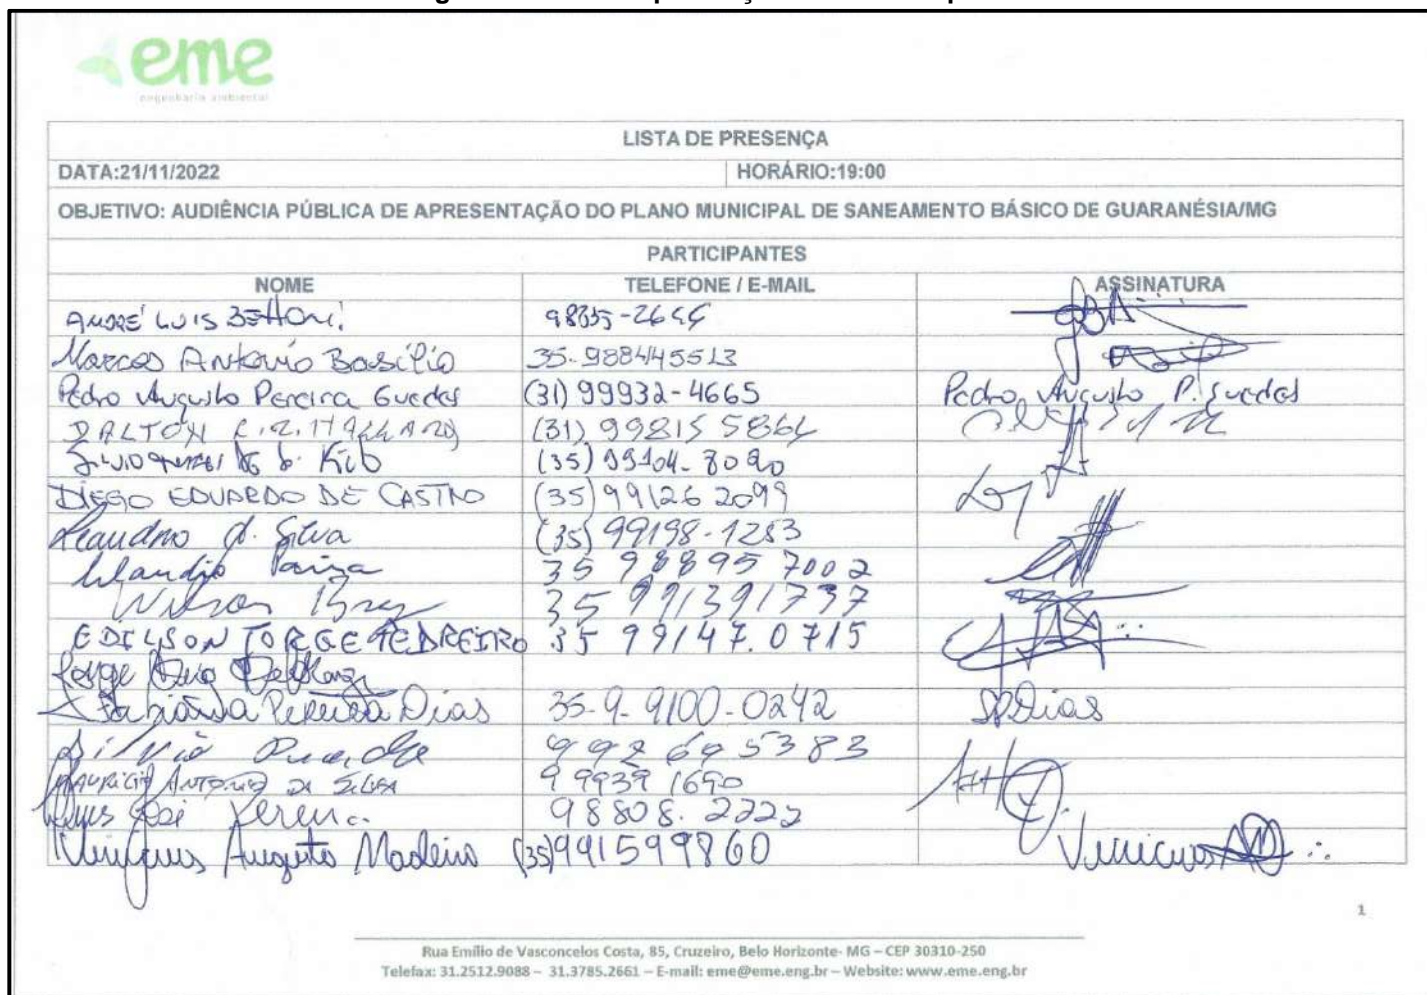 eme
engenharia ambiental
LISTA DE PRESENÇA
DATA:21/11/2022 HORÁRIO:19:00
OBJETIVO: AUDIÊNCIA PÚBLICA DE APRESENTAÇÃO DO PLANO MUNICIPAL DE SANEAMENTO BÁSICO DE GUARANÉSIA/MG
PARTICIPANTES
NOME TELEFONE / E-MAIL ASSINATURA
ANDRÉ LUIS BETTONI
Marcos Antonio Basílio 35-988445513
Pedro Augusto Pereira Guedes (31) 99932-4665 Pedro Augusto P. Guedes
DALTON (31) 99815 5864
(35) 99104-8090
DIEGO EDUARDO DE CASTRO (35) 99126 2099
Leandro Silva (35) 99198-1283
35 98895 7002
Wilson 35 991391737
EDILSON JORGE PEDREIRO 35 99147.0715
Jorge
Fabiana Pereira Dias 35-9-9100-0242 Dias
Silvia 992695383
MAURICIO ANTONIO DA SILVA 9 9939 1690
98808.2222
Vinicius Augusto Madeira (35)991599860 Vinicius
1
Rua Emílio de Vasconcelos Costa, 85, Cruzeiro, Belo Horizonte- MG – CEP 30310-250
Telefax: 31.2512.9088 – 31.3785.2661 – E-mail: eme@eme.eng.br – Website: www.eme.eng.br